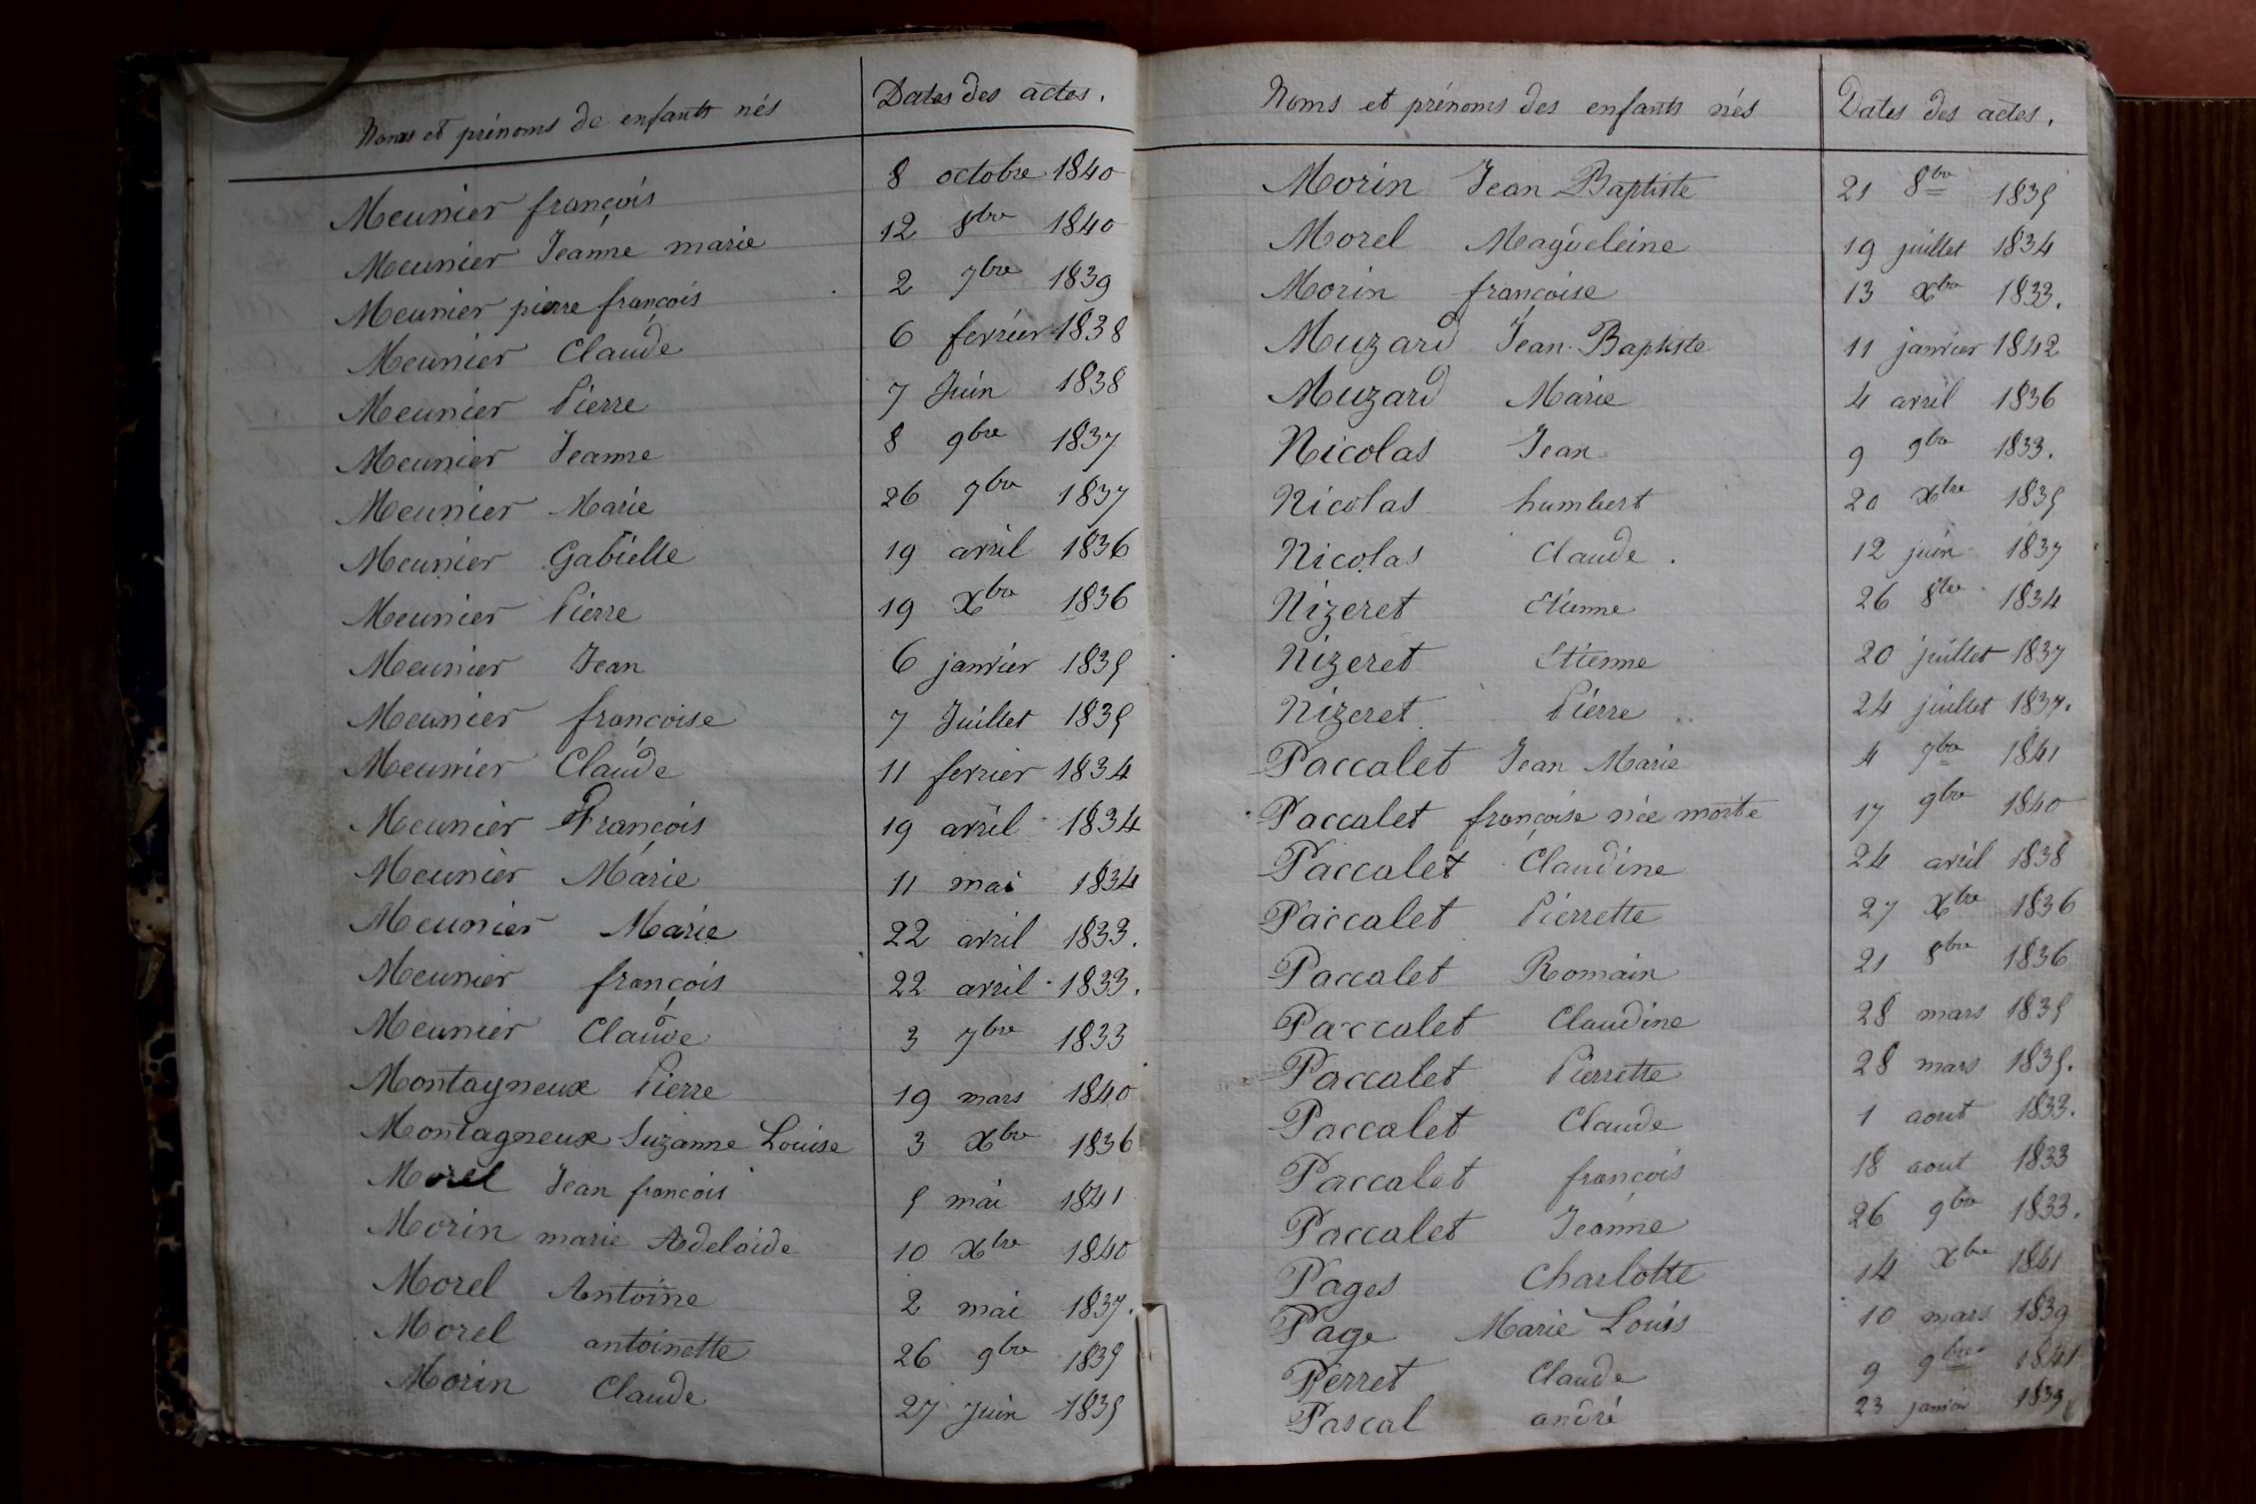 Noms et prénoms de enfants nés | Dates des actes.
Meunier françois 8 octobre 1840
Meunier Jeanne marie 12 8bre 1840
Meunier pierre françois 2 7bre 1839
Meunier Claude 6 fevrier 1838
Meunier Pierre 7 Juin 1838
Meunier Jeanne 8 9bre 1837
Meunier Marie 26 7bre 1837
Meunier Gabielle 19 avril 1836
Meunier Pierre 19 Xbre 1836
Meunier Jean 6 janvier 1835
Meunier françoise 7 Juillet 1835
Meunier Claude 11 fevrier 1834
Meunier François 19 avril 1834
Meunier Marie 11 mai 1834
Meunier Marie 22 avril 1833.
Meunier françois 22 avril 1833.
Meunier Claude 3 7bre 1833
Montagneux Pierre 19 mars 1840
Montagneux Suzanne Louise 3 Xbre 1836
Morel Jean françois 5 mai 1841
Morin marie Adelaide 10 Xbre 1840
Morel Antoine 2 mai 1837.
Morel antoinette 26 9bre 1835
Morin Claude 27 Juin 1835
Noms et prénoms des enfants nés | Dates des actes.
Morin Jean Baptiste 21 8bre 1835
Morel Magdeleine 19 juillet 1834
Morin françoise 13 Xbre 1833.
Muzard Jean Baptiste 11 janvier 1842
Muzard Marie 4 avril 1836
Nicolas Jean 9 9bre 1833.
Nicolas humbert 20 Xbre 1835
Nicolas Claude. 12 juin 1837
Nizeret Etienne 26 8bre 1834
Nizeret Etienne 20 juillet 1837
Nizeret Pierre 24 juillet 1837.
Paccalet Jean Marie 4 7bre 1841
Paccalet françoise née morte 17 9bre 1840
Paccalet Claudine 24 avril 1838
Paccalet Pierrette 27 Xbre 1836
Paccalet Romain 21 8bre 1836
Paccalet Claudine 28 mars 1835
Paccalet Pierrette 28 mars 1835.
Paccalet Claude 1 aout 1833.
Paccalet françois 18 aout 1833
Paccalet Jeanne 26 9bre 1833.
Pages Charlotte 14 Xbre 1841
Page Marie Louis 10 mars 1839
Perret Claude 9 9bre 1841
Pascal andré 23 janvier